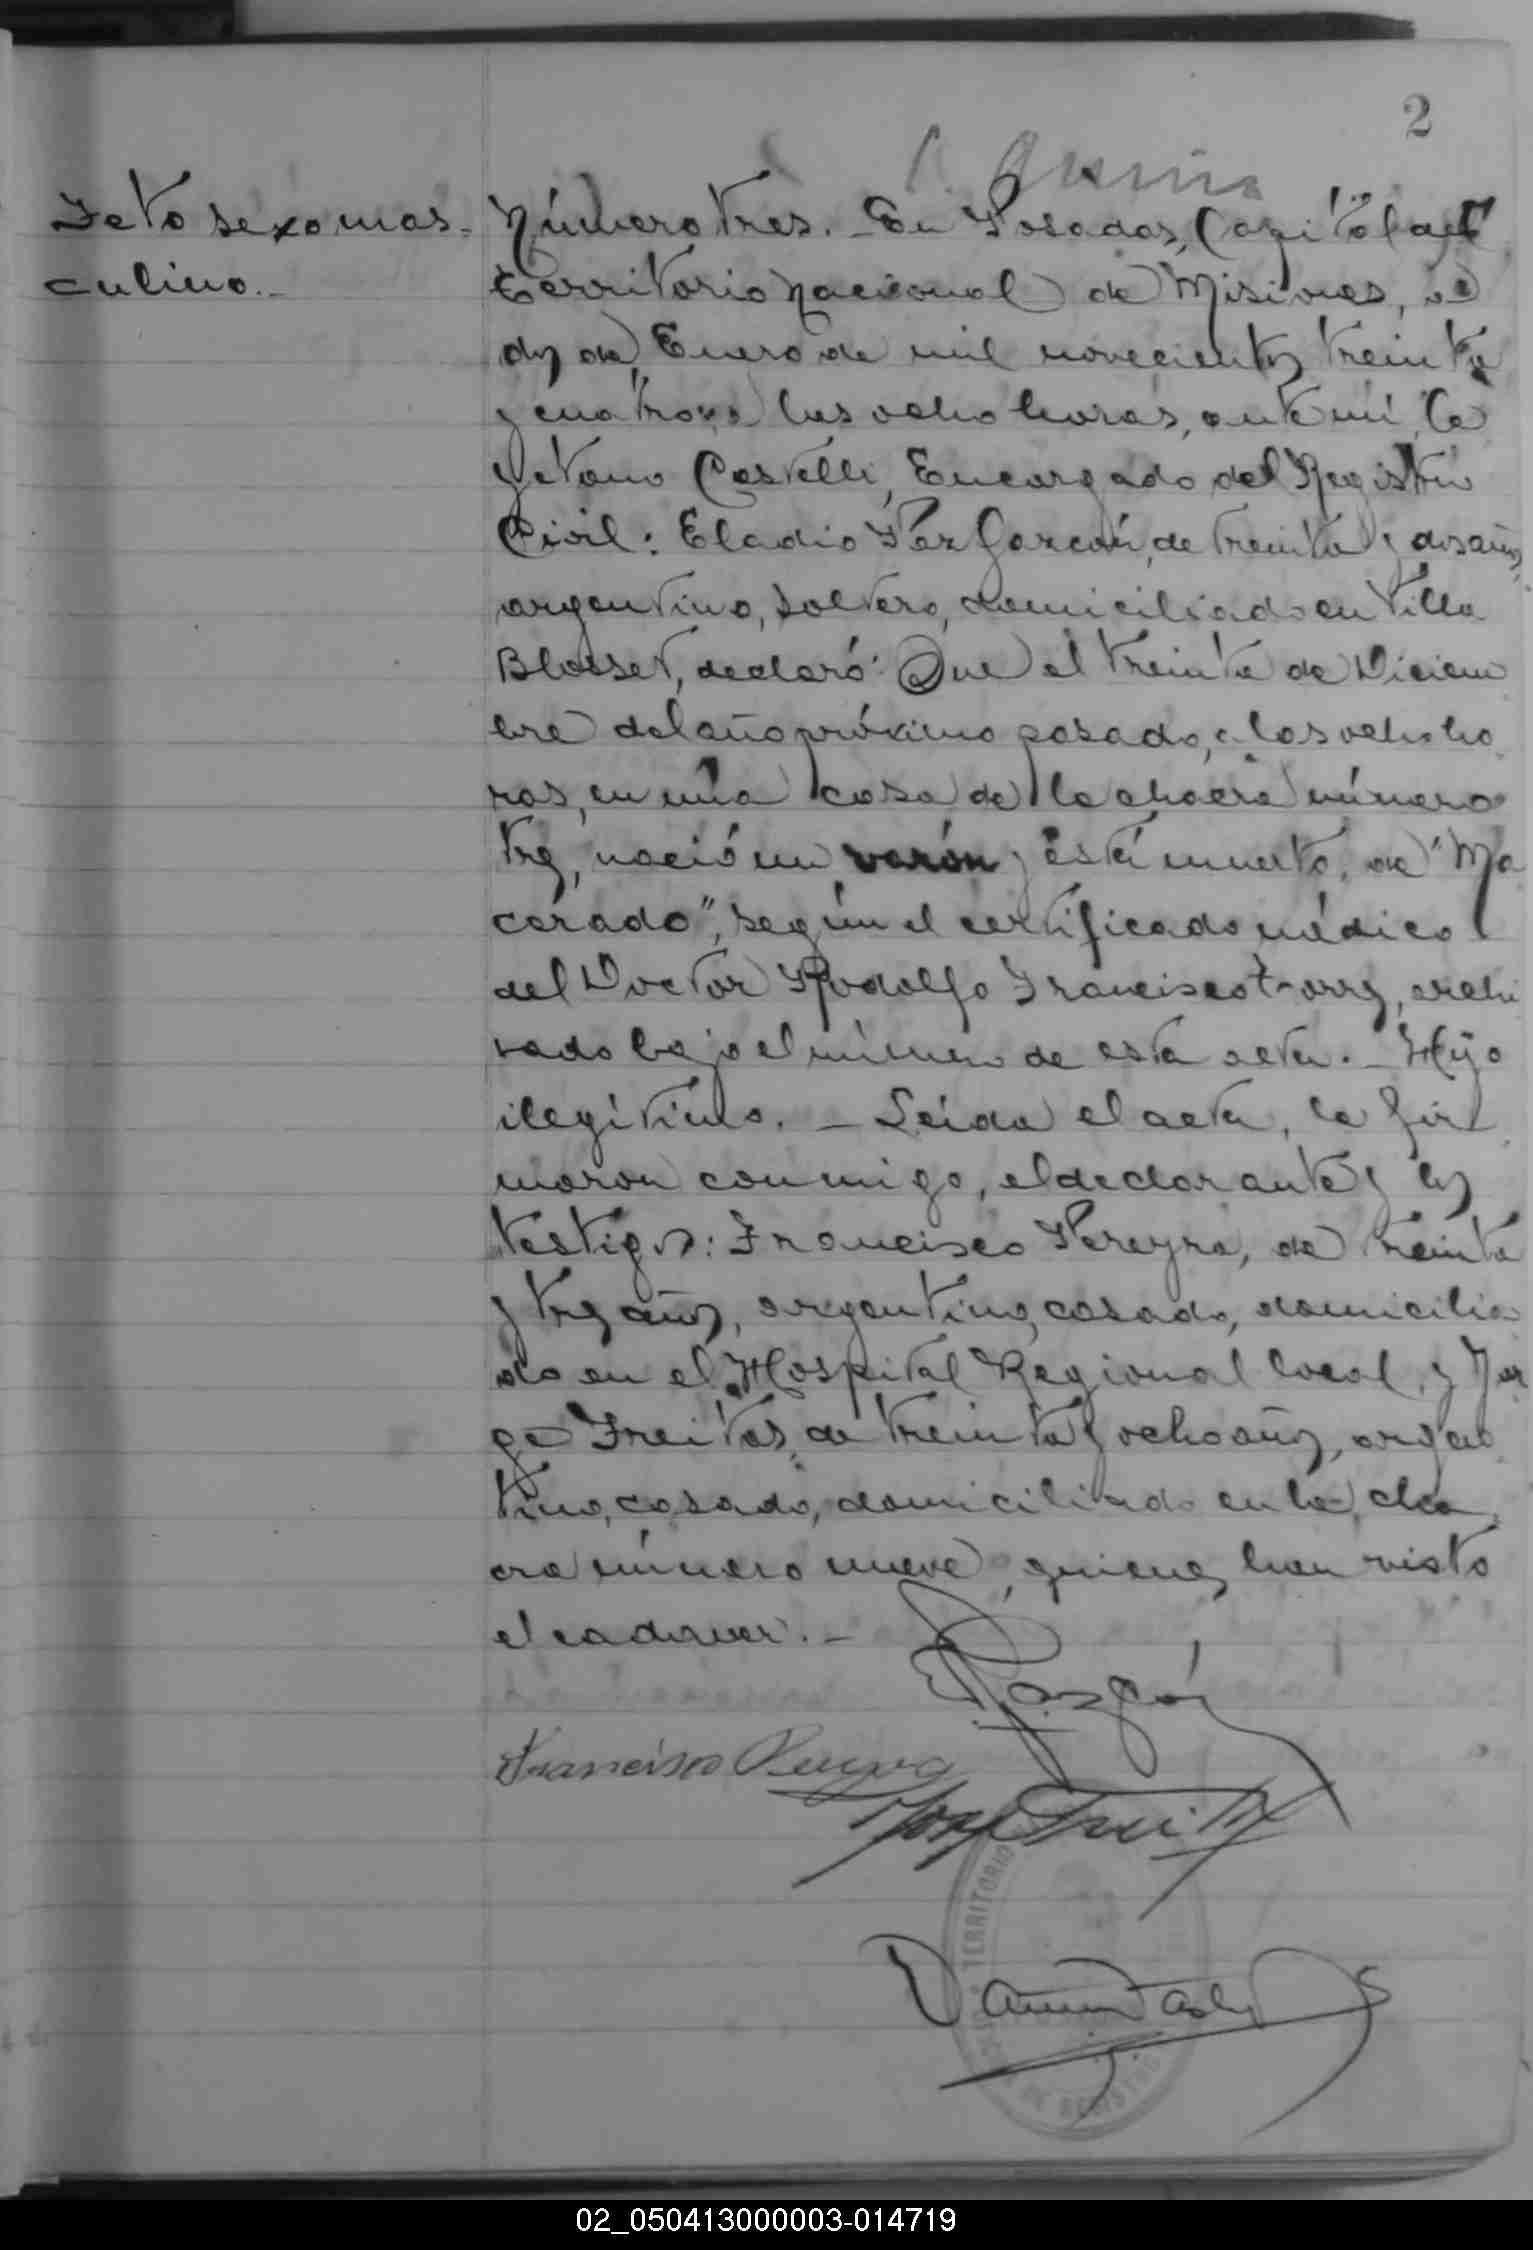 2
Feto sexo mas-
culino.-
Número tres. - En Posadas, Capital del
Territorio Nacional de Misiones, a
dos de Enero de mil novecientos treinta
y cuatro, a las ocho horas, ante mí, Ca
yetano Castelli, Encargado del Registro
Civil: Eladio de treinta y dos años,
argentino, soltero, domiciliado en Villa
Blosset, declaró: Que el treinta de Diciem
bre del año próximo pasado, a las ocho ho
ras, en una casa de la chacra número
tres, nació un varón y está muerto, de "Ma
cerado", según el certificado médico
del Doctor Rodolfo Francisco Torres, archi
vado bajo el número de esta acta. - Hijo
ilegítimo. - Leída el acta, la fir
maron conmigo, el declarante y los
testigos: Francisco Pereyra, de treinta
y tres años, argentino, casado, domicilia
do en el Hospital Regional local, y Jor
ge Freitas, de treinta y ocho años, argen
tino, casado, domiciliado en la cha
cra número nueve, quienes han visto
el cadaver. -
Francisco Pereyra
Jorge Freitas
TERRITORIO
DE REGISTRO
02_050413000003-014719